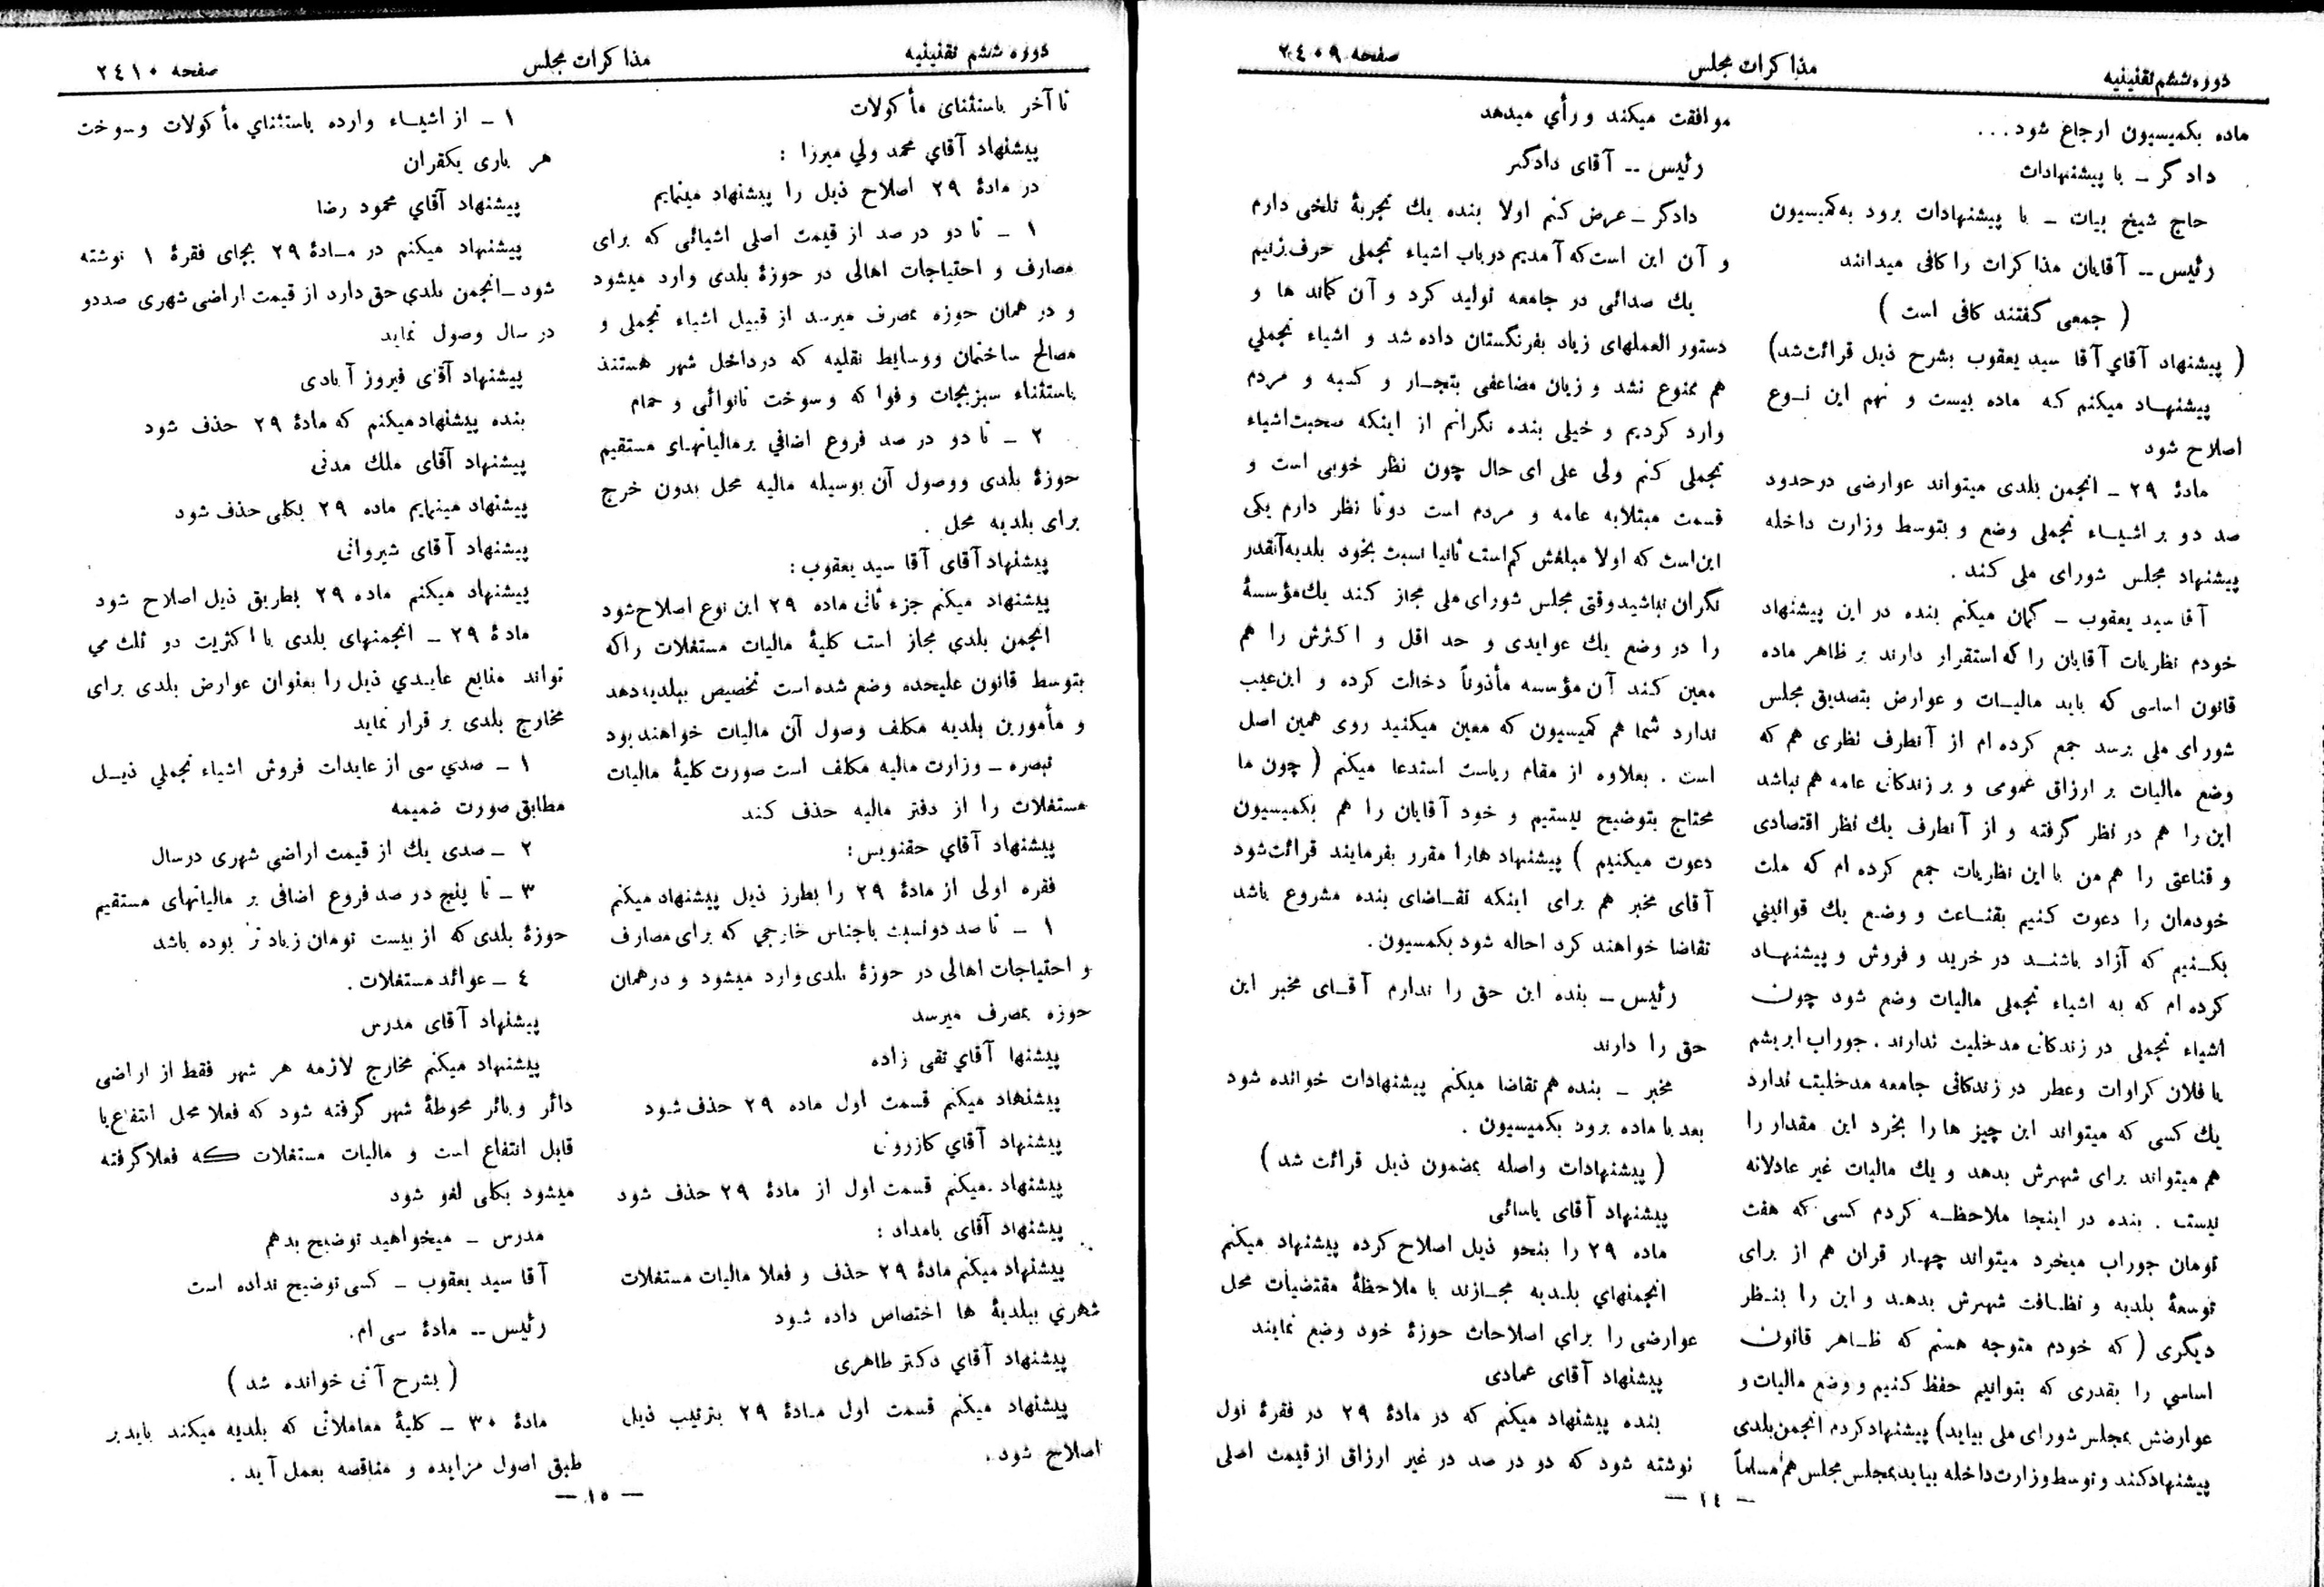 دوره ششم تقنینیه
مذاکرات مجلس
صفحه ٢٤٠٩
ماده بکمیسیون ارجاع شود...
دادگر ـ با پیشنهادات
حاج شیخ بیات ـ با پیشنهادات برود به کمیسیون
رئیس ــ آقایان مذاکرات را کافی میدانند
( جمعی گفتند کافی است )
( پیشنهاد آقاي آقا سید یعقوب بشرح ذیل قرائت شد)
پیشنهاد میکنم که ماده بیست و نهم این نوع
اصلاح شود
مادهٔ ٢٩ ـ انجمن بلدی میتواند عوارضی در حدود
صد دو بر اشیاء تجملی وضع و بتوسط وزارت داخله
پیشنهاد مجلس شورای ملی کند .
آقا سید یعقوب ـ گمان میکنم بنده در این پیشنهاد
خودم نظریات آقایان را که استقرار دارند بر ظاهر ماده
قانون اساسی که باید مالیات و عوارض بتصدیق مجلس
شورای ملی برسد جمع کرده ام از آنطرف نظری هم که
وضع مالیات بر ارزاق عمومی و بر زندگانی عامه هم نباشد
این را هم در نظر گرفته و از آنطرف یك نظر اقتصادی
و قناعتی را هم من با این نظریات جمع کرده ام که ملت
خودمان را دعوت کنیم بقناعت و وضع یك قوانینی
بکنیم که آزاد باشند در خرید و فروش و پیشنهاد
کرده ام که به اشیاء تجملی مالیات وضع شود چون
اشیاء تجملی در زندگانی مدخلیت ندارند . جوراب ابریشم
یا فلان کراوات و عطر در زندگانی جامعه مدخلیت ندارد
یك کسی که میتواند این چیز ها را بخرد این مقدار را
هم میتواند برای شهرش بدهد و یك مالیات غیر عادلانه
نیست . بنده در اینجا ملاحظه کردم کسی که هفت
تومان جوراب میخرد میتواند چهار قران هم از برای
توسعهٔ بلدیه و نظافت شهرش بدهد و این را بنظر
دیگری ( که خودم متوجه هستم که ظاهر قانون
اساسي را بقدری که بتوانیم حفظ کنیم و وضع مالیات و
عوارضش بمجلس شورای ملی بیاید) پیشنهاد کردم انجمن بلدی
پیشنهاد کند و توسط وزارت داخله بیاید بمجلس مجلس هم مسلماً
موافقت میکند و رأي میدهد
رئیس ــ آقای دادگر
دادگر ـ عرض کنم اولا بنده یك تجربهٔ تلخی دارم
و آن این است که آمدیم در باب اشیاء تجملی حرف بزنیم
یك صدائی در جامعه تولید کرد و آن کماند ها و
دستور العملهای زیاد بفرنگستان داده شد و اشیاء تجملي
هم ممنوع نشد و زیان مضاعفی بتجار و کسبه و مردم
وارد کردیم و خیلی بنده نگرانم از اینکه صحبت اشیاء
تجملی کنم ولی علی ای حال چون نظر خوبی است و
قسمت مبتلابه عامه و مردم است دو تا نظر دارم یکی
این است که اولا مبلغش کم است ثانیا نسبت بخود بلدیه آنقدر
نگران نباشید وقتی مجلس شورای ملی مجاز کند یك مؤسسهٔ
را در وضع یك عوایدی و حد اقل و اکثرش را هم
معین کند آن مؤسسه مأذوناً دخالت کرده و این عیب
ندارد شما هم کمیسیون که معین میکنید روی همین اصل
است . بعلاوه از مقام ریاست استدعا میکنم ( چون ما
محتاج بتوضیح نیستیم و خود آقایان را هم بکمیسیون
دعوت میکنیم ) پیشنهاد هارا مقرر بفرمایند قرائت شود
آقای مخبر هم برای اینکه تقاضای بنده مشروع باشد
تقاضا خواهند کرد احاله شود بکمسیون.
رئیس ـ بنده این حق را ندارم آقای مخبر این
حق را دارند
مخبر ـ بنده هم تقاضا میکنم پیشنهادات خوانده شود
بعد با ماده برود بکمیسیون .
( پیشنهادات واصله بمضمون ذیل قرائت شد )
پیشنهاد آقای یاسائی
ماده ٢٩ را بنحو ذیل اصلاح کرده پیشنهاد میکنم
انجمنهاي بلدیه مجازند با ملاحظهٔ مقتضیات محل
عوارضی را براي اصلاحات حوزهٔ خود وضع نمایند
پیشنهاد آقای عمادی
بنده پیشنهاد میکنم که در مادهٔ ٢٩ در فقرهٔ اول
نوشته شود که دو در صد در غیر ارزاق از قیمت اصلی
— ١٤ —
دوره ششم تقنینیه
مذاکرات مجلس
صفحه ٢٤١٠
تا آخر باستثنای مأکولات
پیشنهاد آقاي محمد ولي میرزا :
در مادهٔ ٢٩ اصلاح ذیل را پیشنهاد مینمایم
١ ـ تا دو در صد از قیمت اصلی اشیائی که برای
مصارف و احتیاجات اهالی در حوزهٔ بلدی وارد میشود
و در همان حوزه بمصرف میرسد از قبیل اشیاء تجملی و
مصالح ساختمان و وسایط نقلیه که در داخل شهر هستند
باستثناء سبزیجات و فواکه و سوخت نانوائی و حمام
٢ ـ تا دو در صد فروع اضافي بر مالیاتهای مستقیم
حوزهٔ بلدی و وصول آن بوسیله مالیه محل بدون خرج
برای بلدیه محل .
پیشنهاد آقای آقا سید یعقوب :
پیشنهاد میکنم جزء ثانی ماده ٢٩ این نوع اصلاح شود
انجمن بلدي مجاز است کلیهٔ مالیات مستغلات را که
بتوسط قانون علیحده وضع شده است تخصیص ببلدیه دهد
و مأمورین بلدیه مکلف وصول آن مالیات خواهند بود
تبصره ـ وزارت مالیه مکلف است صورت کلیهٔ مالیات
مستغلات را از دفتر مالیه حذف کند
پیشنهاد آقاي حقنویس :
فقره اولی از مادهٔ ٢٩ را بطرز ذیل پیشنهاد میکنم
١ ـ تا صد دو نسبت باجناس خارجي که برای مصارف
و احتیاجات اهالی در حوزهٔ بلدی وارد میشود و در همان
حوزه بمصرف میرسد
پیشنها آقاي تقی زاده
پیشنهاد میکنم قسمت اول ماده ٢٩ حذف شود
پیشنهاد آقاي کازرونی
پیشنهاد میکنم قسمت اول از مادهٔ ٢٩ حذف شود
پیشنهاد آقای بامداد :
پیشنهاد میکنم مادهٔ ٢٩ حذف و فعلا مالیات مستغلات
شهري ببلدیهٔ ها اختصاص داده شود
پیشنهاد آقاي دکتر طاهری
پیشنهاد میکنم قسمت اول مادهٔ ٢٩ بترتیب ذیل
اصلاح شود .
١ ـ از اشیاء وارده باستثناي مأکولات و سوخت
هر باری یکقران
پیشنهاد آقاي محمود رضا
پیشنهاد میکنم در مادهٔ ٢٩ بجای فقرهٔ ١ نوشته
شود ـ انجمن بلدي حق دارد از قیمت اراضی شهری صد دو
در سال وصول نماید
پیشنهاد آقای فیروز آبادی
بنده پیشنهاد میکنم که مادهٔ ٢٩ حذف شود
پیشنهاد آقای ملك مدنی
پیشنهاد مینمایم ماده ٢٩ بکلی حذف شود
پیشنهاد آقای شیروانی
پیشنهاد میکنم ماده ٢٩ بطریق ذیل اصلاح شود
مادهٔ ٢٩ ـ انجمنهای بلدی با اکثریت دو ثلث مي
تواند منابع عایدي ذیل را بعنوان عوارض بلدی برای
مخارج بلدی برقرار نماید
١ ـ صدي سی از عایدات فروش اشیاء تجملي ذیل
مطابق صورت ضمیمه
٢ ـ صدی یك از قیمت اراضي شهری در سال
٣ ـ تا پنج در صد فروع اضافی بر مالیاتهای مستقیم
حوزهٔ بلدی که از بیست تومان زیاد تر بوده باشد
٤ ـ عوائد مستغلات .
پیشنهاد آقای مدرس
پیشنهاد میکنم مخارج لازمه هر شهر فقط از اراضی
دائر و بائر محوطهٔ شهر گرفته شود که فعلا محل انتفاع یا
قابل انتفاع است و مالیات مستغلات که فعلا گرفته
میشود بکلی لغو شود
مدرس ـ میخواهید توضیح بدهم
آقا سید یعقوب ـ کسی توضیح نداده است
رئیس ــ مادهٔ سی ام.
( بشرح آتی خوانده شد )
مادهٔ ٣٠ ـ کلیهٔ معاملاتی که بلدیه میکند باید بر
طبق اصول مزایده و مناقصه بعمل آید .
— ١٥ —